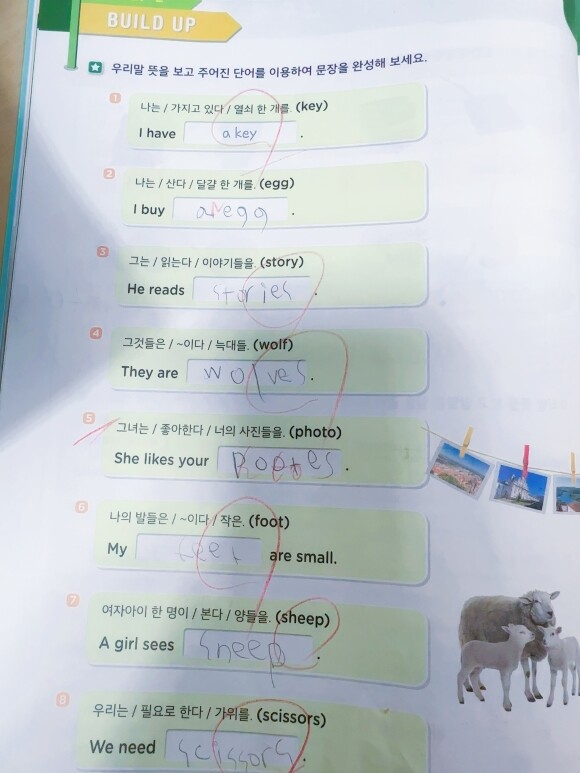 BUILD UP
우리말 뜻을 보고 주어진 단어를 이용하여 문장을 완성해 보세요.
1 나는 / 가지고 있다 / 열쇠 한 개를. (key)
I have a key .
2 나는 / 산다 / 달걀 한 개를. (egg)
I buy an egg .
3 그는 / 읽는다 / 이야기들을. (story)
He reads stories .
4 그것들은 / ~이다 / 늑대들. (wolf)
They are wolves .
5 그녀는 / 좋아한다 / 너의 사진들을. (photo)
She likes your .
6 나의 발들은 / ~이다 / 작은. (foot)
My feet are small.
7 여자아이 한 명이 / 본다 / 양들을. (sheep)
A girl sees sheep .
8 우리는 / 필요로 한다 / 가위를. (scissors)
We need scissors .